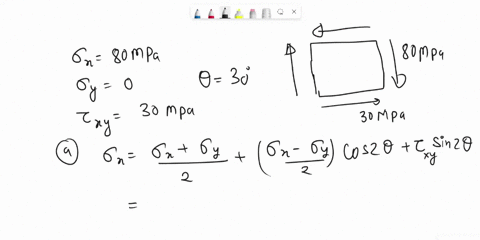 σx = 80 MPa
σy = 0
θ = 30°
τxy = 30 mpa
80MPa
30 MPa
ⓐ σx = σx + σy / 2 + (σx - σy / 2) Cos2θ + τxy Sin2θ
=